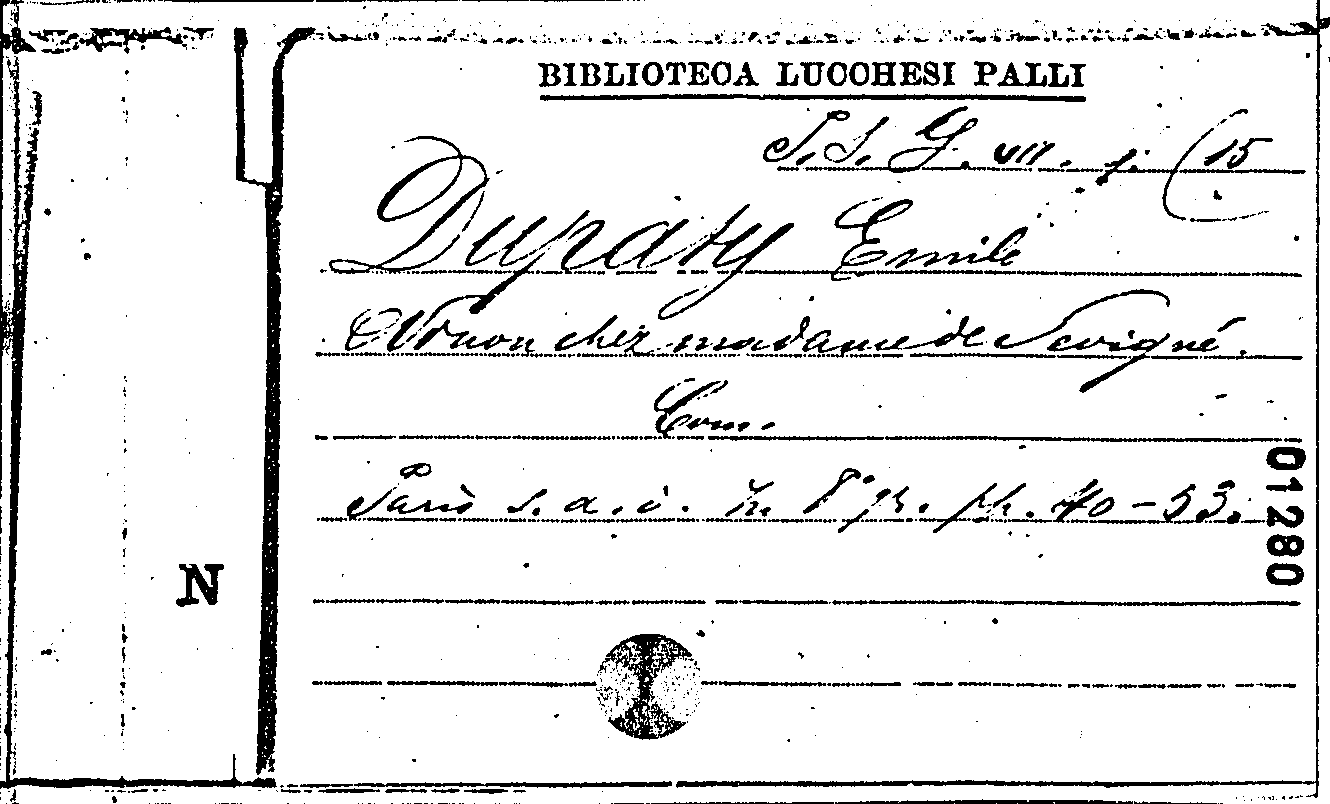 BIBLIOTECA LUCCHESI PALLI
S. S. G. VII. f. (15
Dupaty Emile
Ninon chez madame de Sevigné.
Com.
Paris s. a. i. in 8° pp. 40-53.
01280
N